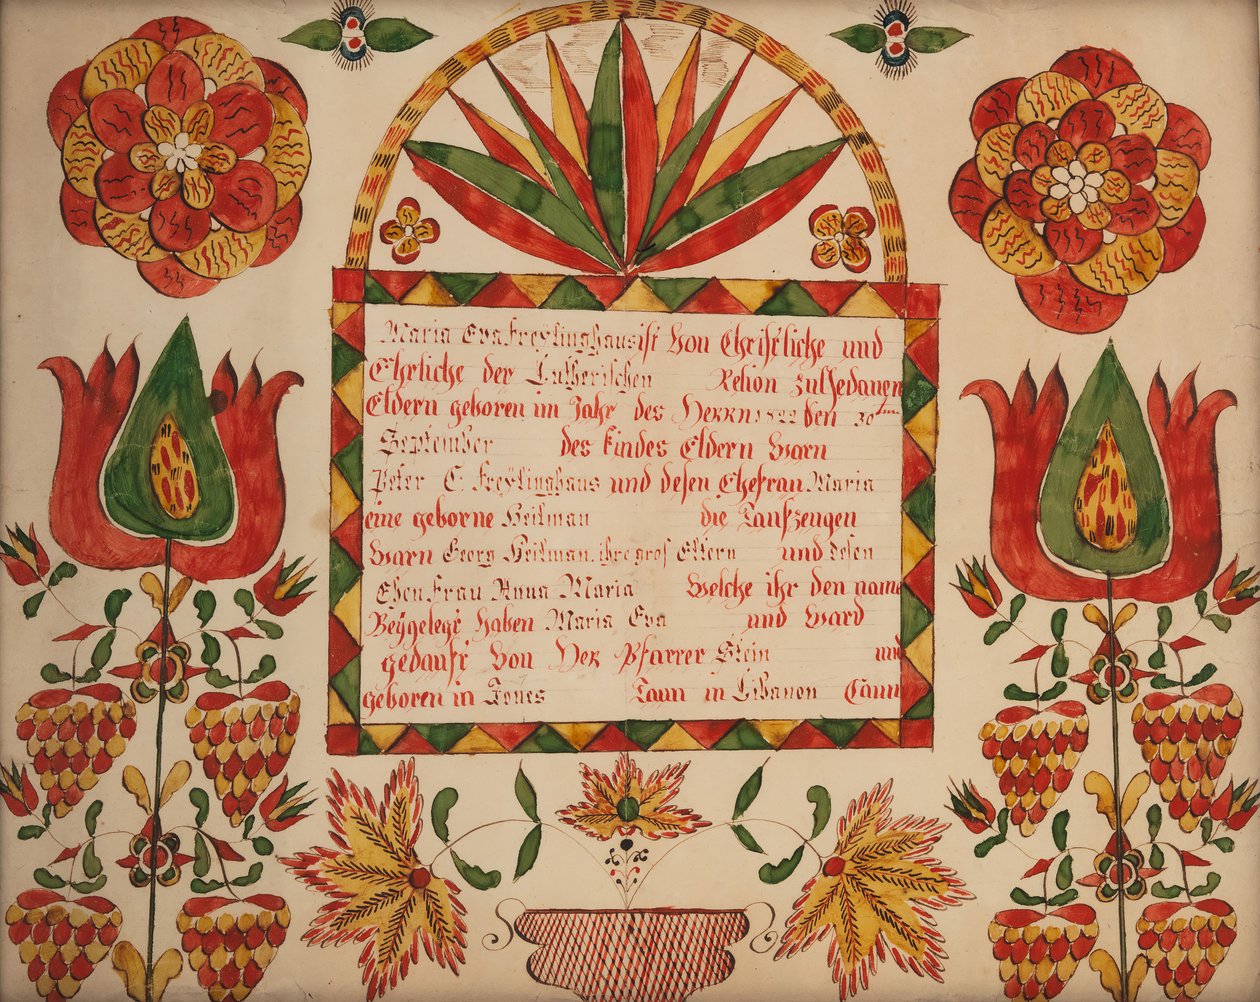 Maria Eva Freylinghaus ist Von Christliche und
Ehrliche der Lutherischen Relion zu gedanen
Eldern geboren im Jahr des Herrn 1822 den 30ten
September des kindes Eldern warn
Peter C. Freylinghaus und desen Ehefrau Maria
eine geborne Heilman die Taufzeugen
warn Georg Heilman, ihre gros Eltern und desen
Ehen Frau Anna Maria Welche ihr den name
Beygelegt haben Maria Eva und ward
gedauft Von Der Pfarrer Stein
geboren in Taun in Libanon Caun